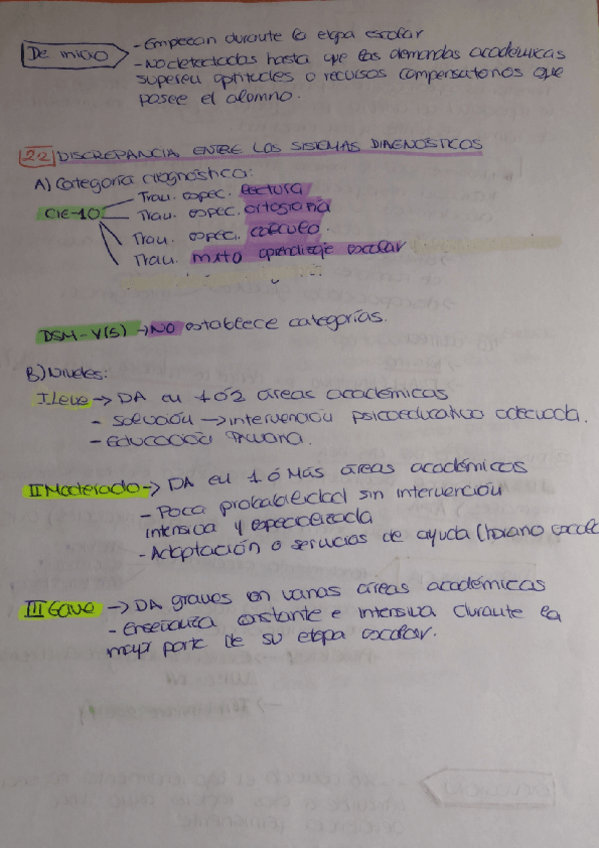 De inicio
- Empiezan durante la etapa escolar
- No detectados hasta que las demandas académicas
superen aptitudes o recursos compensatorios que
posee el alumno.
2.2 DISCREPANCIA ENTRE LOS SISTEMAS DIAGNÓSTICOS
A) Categoría diagnóstica:
CIE-10
Trau. espec. lectura
Trau. espec. ortografía
Trau. espec. cálculo.
Trau. mixto aprendizaje escolar
DSM-V(5) → NO establece categorías.
B) Niveles:
I. Leve → DA en 1 ó 2 áreas académicas
- Solución → intervención psicoeducativa adecuada.
- Educación Primaria.
II Moderado → DA en 1 ó MÁS áreas académicas
- Poca probabilidad sin intervención
intensiva y especializada
- Adaptación o servicios de ayuda (horario
III Grave → DA graves en varias áreas académicas
- Enseñanza constante e intensiva durante la
mayor parte de su etapa escolar.